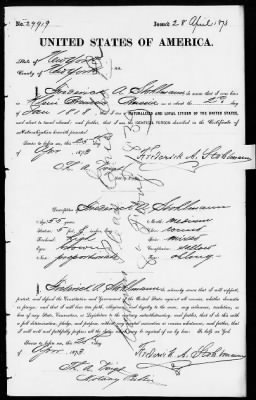 No. 29919 Issued 28 April 1873
UNITED STATES OF AMERICA.
State of New York
County of New York } ss.
I, Frederick A. Stohlmann do swear that I was born
in Prussia on or about the
Jan 1818 that I am a NATURALIZED AND LOYAL CITIZEN OF THE UNITED STATES,
and about to travel abroad; and further, that I am the IDENTICAL PERSON described in the Certificate of
Naturalization herewith presented.
Sworn to before me, this 25th day
of Apr 1873
Frederick A. Stohlmann
Description Frederick A. Stohlmann
Age, 55 years
Mouth: medium
Stature: 5 feet
Chin: round
Forehead: high
Hair: mixed
Eyes: brown
Complexion: sallow
Nose: proportionate
Face: oblong
I, Frederick A. Stohlmann do solemnly swear that I will support,
protect, and defend the Constitution and Government of the United States against all enemies, whether domestic
or foreign; and that I will bear true faith, allegiance, and loyalty to the same, any ordinance, resolution, or
law of any State, Convention, or Legislature to the contrary notwithstanding; and further, that I do this with
a full determination, pledge, and purpose, without any mental reservation or evasion whatsoever; and further, that
I will well and faithfully perform all the duties which may be required of me by law: So help me God
Sworn to before me, this 25th day
of Apr 1873
Frederick A. Stohlmann
Notary Public